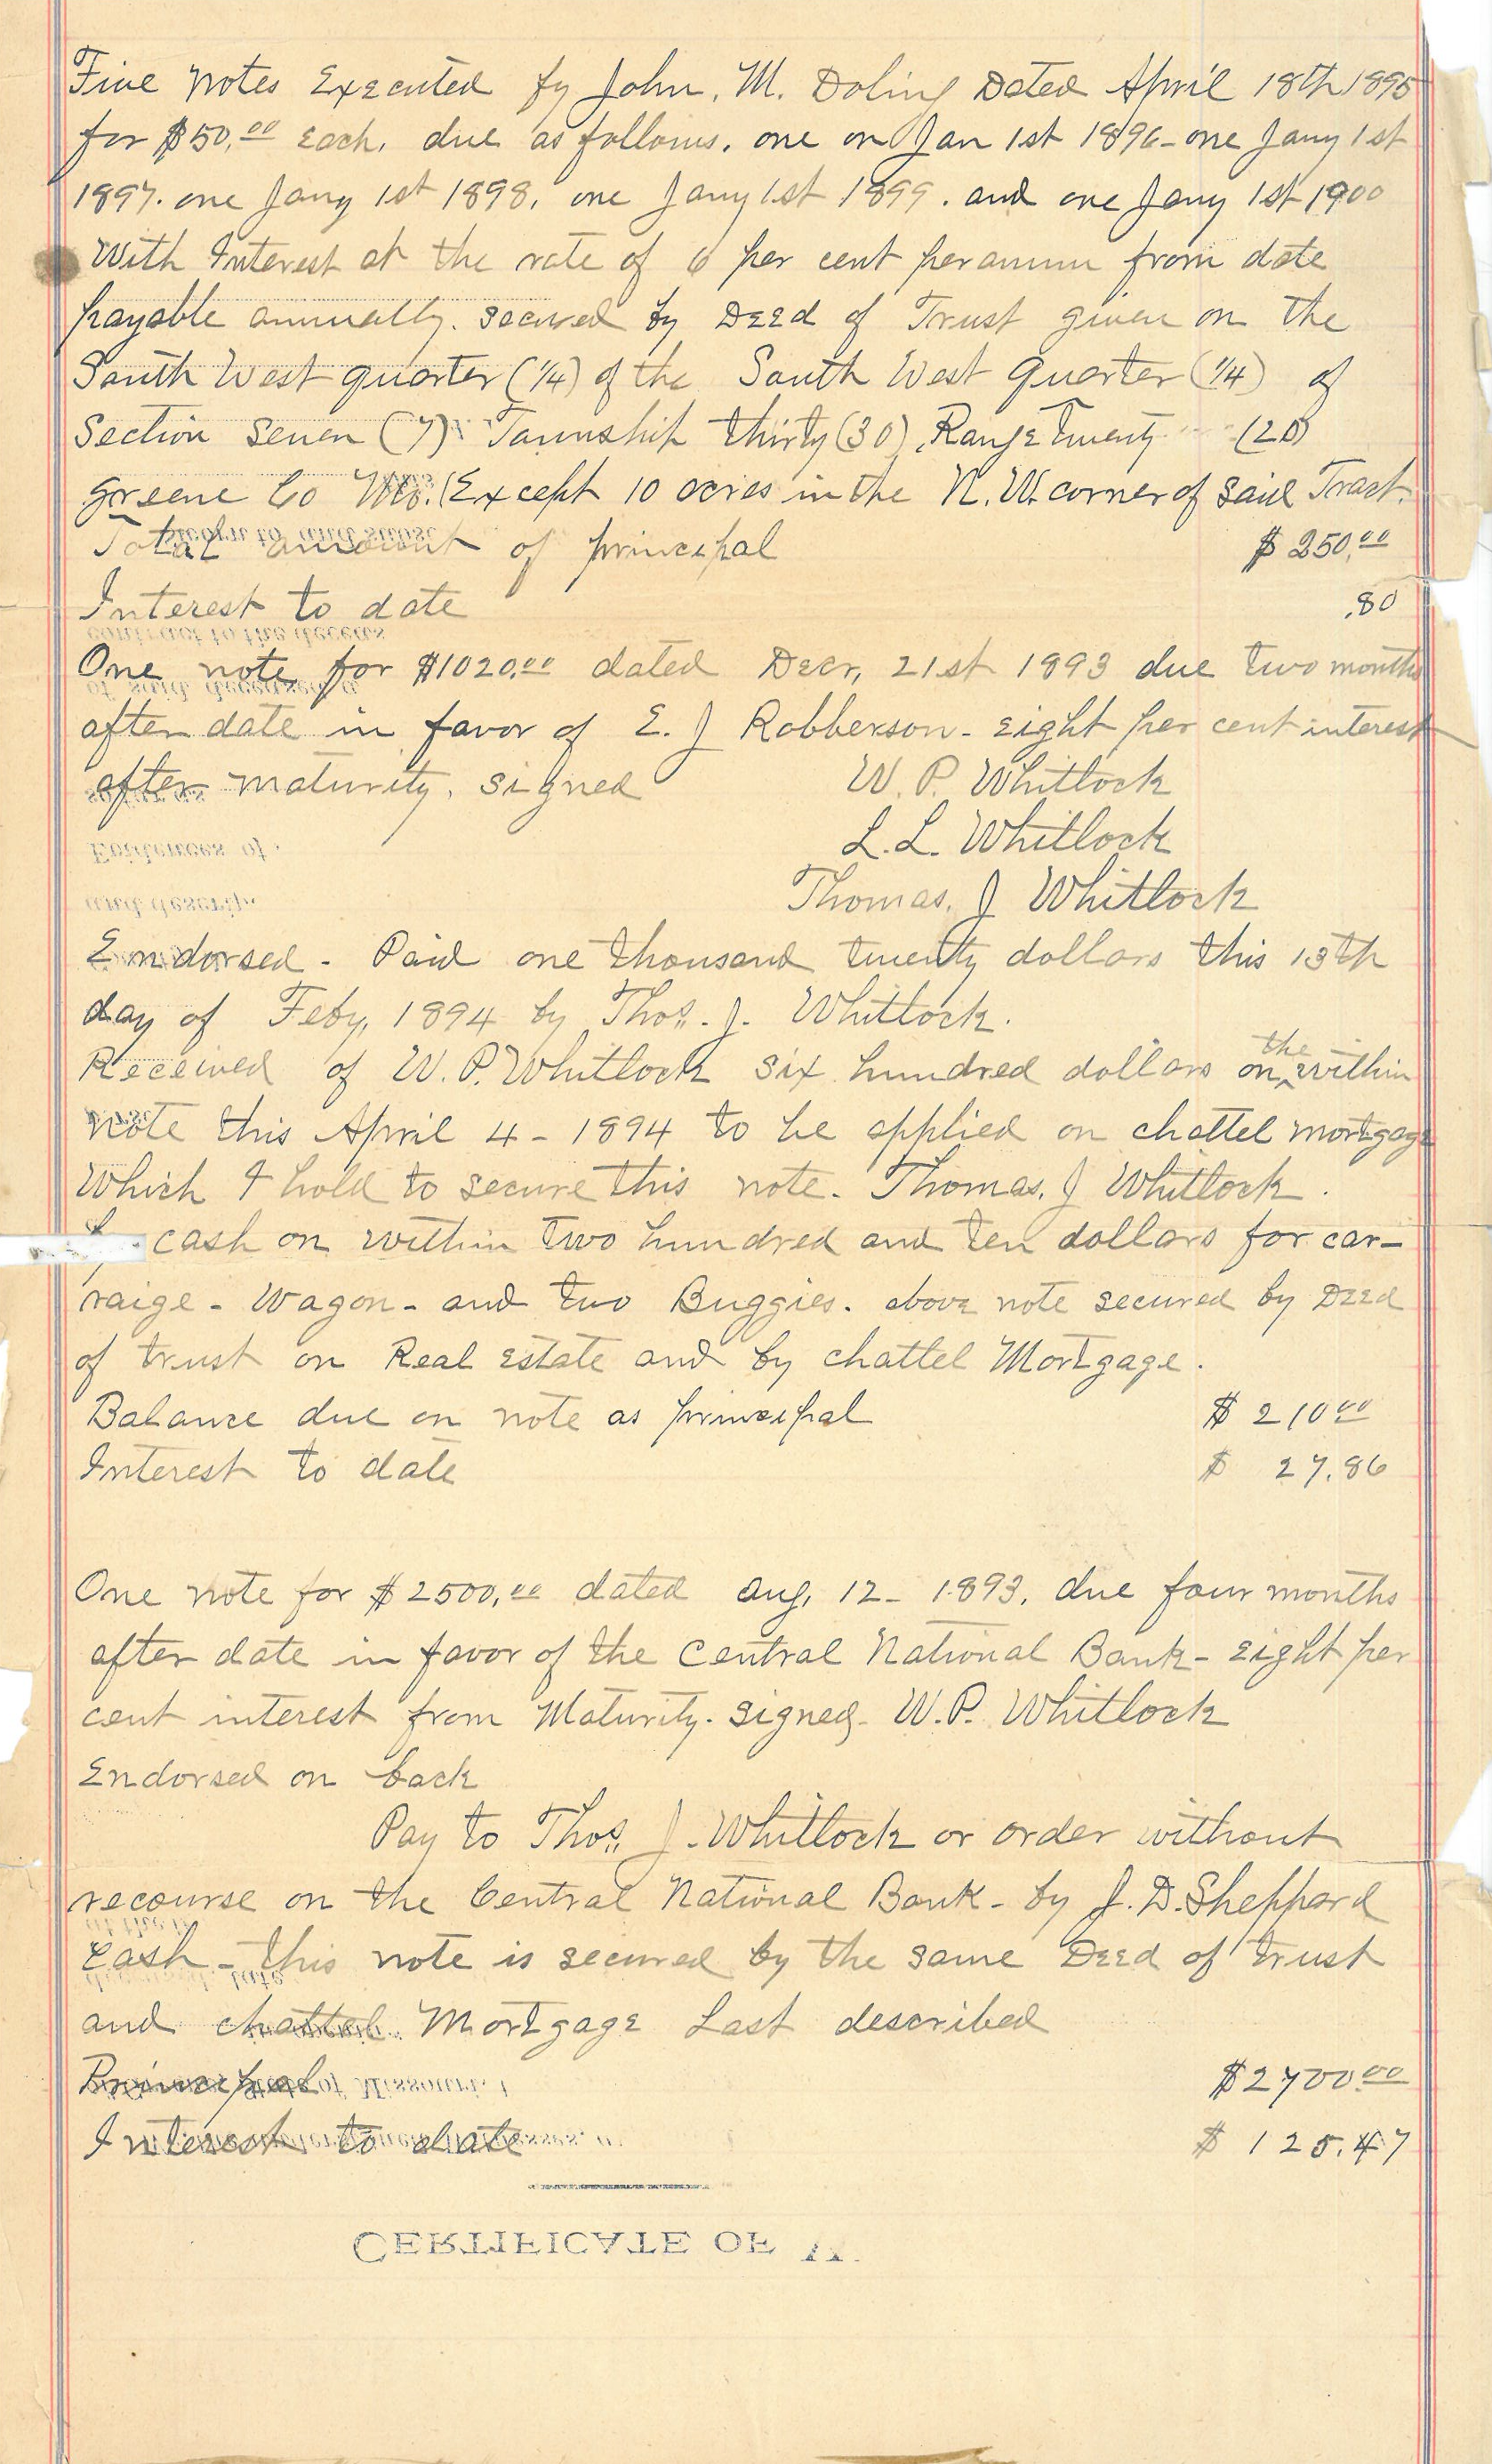 Five notes Executed by John. M. Doling Dated April 18th 1895
for $50.00 Each. due as follows. one on Jan 1st 1896 - one Jany 1st
1897. one Jany 1st 1898. one Jany 1st 1899. and one Jany 1st 1900
With Interest at the rate of 6 per cent per annum from date
payable annually. secured by Deed of Trust given on the
South West quarter (1/4) of the South West Quarter (1/4) of
Section Seven (7) Township thirty (30) Range Twenty (20)
Greene Co Mo. (Except 10 acres in the N.W. corner of said Tract.
Total amount of principal $250.00
Interest to date .80
One note for $1020.00 dated Decr, 21st 1893 due two months
after date in favor of E. J Robberson - Eight per cent interest
after maturity. signed W. P. Whitlock
L. L. Whitlock
Thomas. J Whitlock
Endorsed - Paid one thousand twenty dollars this 13th
day of Feby, 1894 by Thos. J. Whitlock.
Received of W. P. Whitlock six hundred dollars on the within
note this April 4 - 1894 to be applied on chattel mortgage
Which I hold to secure this note. Thomas. J Whitlock.
cash on within two hundred and ten dollars for car-
raige - Wagon - and two Buggies. above note secured by Deed
of trust on Real Estate and by chattel Mortgage.
Balance due on note as principal $210.00
Interest to date $27.86
One note for $2500.00 dated Aug, 12 - 1893. due four months
after date in favor of the Central National Bank - Eight per
cent interest from Maturity. signed - W. P. Whitlock
Endorsed on back
Pay to Thos. J. Whitlock or order without
recourse on the Central National Bank - by J. D. Sheppard
Cash - this note is secured by the same Deed of trust
and chattel Mortgage Last described
Principal $2700.00
Interest to date $125.47
CERTIFICATE OF